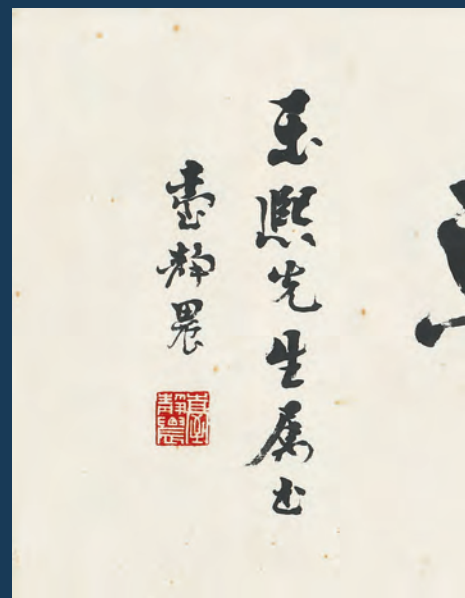 玉熙先生属书
臺静農
臺靜農